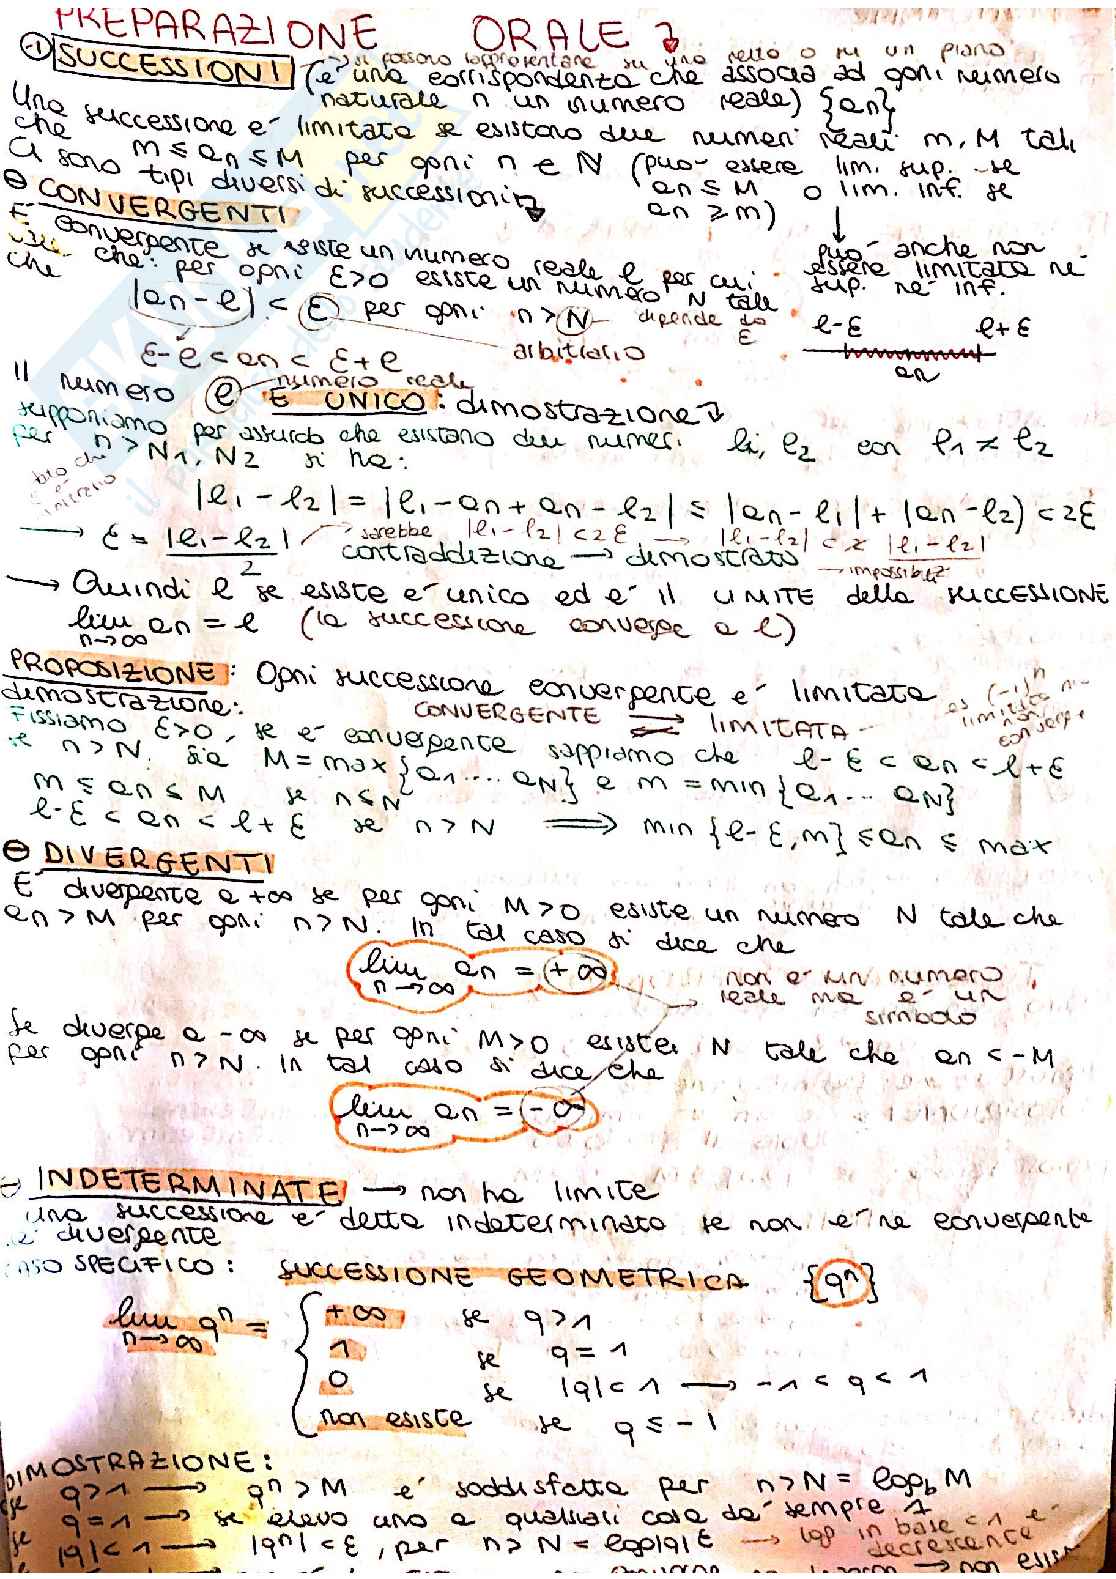 PREPARAZIONE ORALE
→ si possono rappresentare su una retta o su un piano
① SUCCESSIONI (è una corrispondenza che associa ad ogni numero
naturale n un numero reale) {an}
Una successione e' limitata se esistono due numeri reali m, M tali
che m ≤ an ≤ M per ogni n ∈ N (puo' essere lim. sup. se
an ≤ M o lim. inf. se
an ≥ m)
Ci sono tipi diversi di successioni
puo' anche non
essere limitata ne'
sup. ne' inf.
⊖ CONVERGENTI
E' convergente se esiste un numero reale l per cui
che: per ogni ε>0 esiste un numero N tale
che |an - l| < ε per ogni n > N
dipende da ε
arbitrario
l-ε l+ε
an
ε-l < an < ε+l
Il numero l numero reale
E' UNICO: dimostrazione
supponiamo per assurdo che esistano due numeri l1, l2 con l1 ≠ l2
per n > N1, N2 si ha:
|l1 - l2| = |l1 - an + an - l2| ≤ |an - l1| + |an - l2) < 2ε
→ ε = |l1 - l2| / 2
sarebbe |l1 - l2| < 2ε → |l1 - l2| < 2 |l1 - l2|
contraddizione → dimostrato → impossibile
→ Quindi l se esiste e' unico ed e' il LIMITE della SUCCESSIONE
lim an = l (la successione converge a l)
n→∞
PROPOSIZIONE: Ogni successione convergente e' limitata
dimostrazione: CONVERGENTE ⇄ LIMITATA
es (-1)^n
limitata
non
converge
Fissiamo ε>0, se e' convergente sappiamo che l-ε < an < l+ε
se n > N. Sia M = max {a1 ... aN} e m = min {a1 ... aN}
m ≤ an ≤ M se n ≤ N
l-ε < an < l+ε se n > N ⟹ min {l-ε, m} ≤ an ≤ max
⊖ DIVERGENTI
E' divergente a +∞ se per ogni M>0 esiste un numero N tale che
an > M per ogni n > N. In tal caso si dice che
lim an = +∞
n→∞
non e' un numero
reale ma e' un
simbolo
Se diverge a -∞ se per ogni M>0 esiste N tale che an < -M
per ogni n > N. In tal caso si dice che
lim an = -∞
n→∞
⊖ INDETERMINATE → non ha limite
una successione e' detta indeterminata se non e' ne convergente
ne' divergente
CASO SPECIFICO: SUCCESSIONE GEOMETRICA {q^n}
lim q^n = { +∞ se q>1
n→∞
1 se q = 1
0 se |q| < 1 → -1 < q < 1
non esiste se q ≤ -1
DIMOSTRAZIONE:
se q>1 → q^n > M e' soddisfatta per n > N = logb M
se q=1 → se elevo uno a qualsiasi cosa da' sempre 1
se |q|<1 → |q^n| < ε, per n > N = log|q| ε → log in base <1 e'
decrescente
→ non esiste